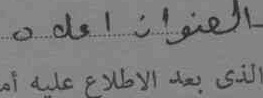 العنوان اعلاه
الذى بعد الاطلاع عليه أم